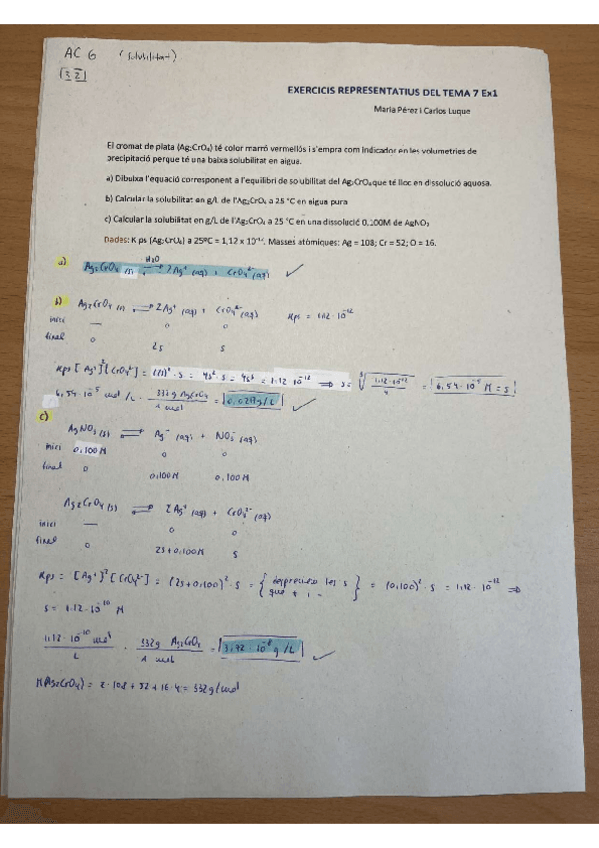 AC 6 (solubilitat)
(3 2)
EXERCICIS REPRESENTATIUS DEL TEMA 7 Ex1
Maria Pérez i Carlos Luque
El cromat de plata (Ag₂CrO₄) té color marró vermellós i s'empra com indicador en les volumetries de
precipitació perque té una baixa solubilitat en aigua.
a) Dibuixa l'equació corresponent a l'equilibri de solubilitat del Ag₂CrO₄ que té lloc en dissolució aquosa.
b) Calcular la solubilitat en g/L de l'Ag₂CrO₄ a 25 °C en aigua pura
c) Calcular la solubilitat en g/L de l'Ag₂CrO₄ a 25 °C en una dissolució 0,100M de AgNO₃
Dades: K ps (Ag₂CrO₄) a 25ºC = 1,12 x 10⁻¹². Masses atòmiques: Ag = 108; Cr = 52; O = 16.
a) Ag₂CrO₄ (s) ⇌ H₂O 2Ag⁺ (aq) + CrO₄²⁻ (aq) ✓
b) Ag₂CrO₄ (s) ⇌ 2Ag⁺ (aq) + CrO₄²⁻ (aq) Kps = 1,12 · 10⁻¹²
inici — 0 0
final 0 2s s
Kps [Ag⁺]² [CrO₄²⁻] = (2s)² · s = 4s² · s = 4s³ = 1,12 · 10⁻¹² ⇒ s = ∛(1,12 · 10⁻¹² / 4) = 6,54 · 10⁻⁵ M = s
6,54 · 10⁻⁵ mol / L · 332 g Ag₂CrO₄ / 1 mol = 0,0217 g/L ✓
c)
AgNO₃ (s) ⇌ Ag⁺ (aq) + NO₃⁻ (aq)
inici 0,100 M 0 0
final 0 0,100 M 0,100 M
Ag₂CrO₄ (s) ⇌ 2Ag⁺ (aq) + CrO₄²⁻ (aq)
inici — 0 0
final 0 2s + 0,100 M s
Kps = [Ag⁺]² [CrO₄²⁻] = (2s + 0,100)² · s = { despreciem les s que + i - } = (0,100)² · s = 1,12 · 10⁻¹² ⇒
s = 1,12 · 10⁻¹⁰ M
1,12 · 10⁻¹⁰ mol / L · 332 g Ag₂CrO₄ / 1 mol = 3,72 · 10⁻⁸ g/L ✓
M(Ag₂CrO₄) = 2 · 108 + 52 + 16 · 4 = 332 g/mol